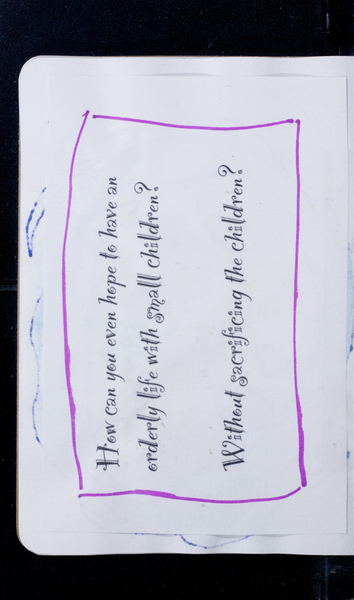 How can you even hope to have an
orderly life with small children?
Without sacrificing the children?